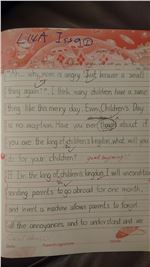 "Ah... why mom is angry. Just because a small
thing again?". I think many children have a same
thing like this merry day. Even Children's Day
is no exception. Have you ever thought about if
you are the king of children's kingdom, what will you
do for your children?
If I'm the king of children's kingdom, I will
sending parents to go abroad for one month
and invent a machine allows parents to forget
all the annoyances and to understand and